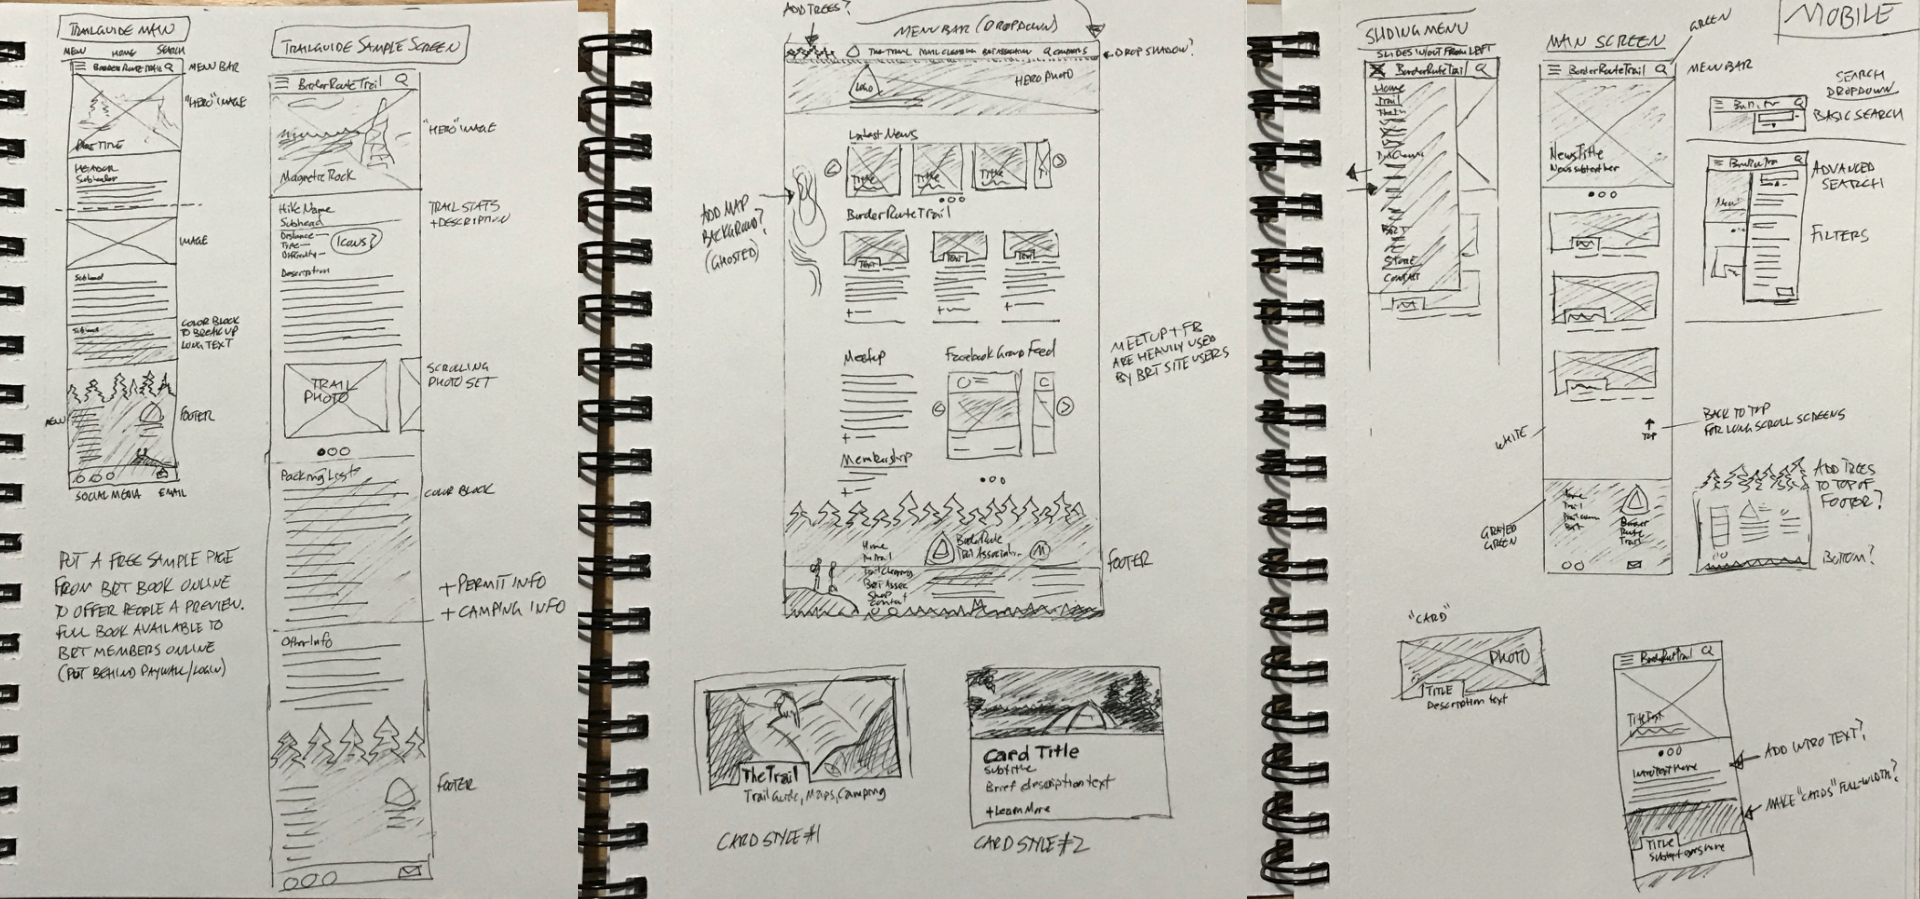 TRAILGUIDE MAIN
MENU
HOME
SEARCH
BorderRouteTrail
MENU BAR
"HERO" IMAGE
PAGE TITLE
HEADER
Subheader
IMAGE
Subhead
Subhead
COLOR BLOCK
TO BREAK UP
LONG TEXT
MENU
FOOTER
SOCIAL MEDIA
EMAIL
PUT A FREE SAMPLE PAGE
FROM BRT BOOK ONLINE
TO OFFER PEOPLE A PREVIEW.
FULL BOOK AVAILABLE TO
BRT MEMBERS ONLINE
(PUT BEHIND PAYWALL/LOGIN)
TRAILGUIDE SAMPLE SCREEN
BorderRouteTrail
"HERO" IMAGE
Magnetic Rock
Hike Name
Subhead
Distance
Time
Difficulty
Icons?
TRAIL STATS
+ DESCRIPTION
Description
TRAIL
PHOTO
SCROLLING
PHOTO SET
Packing List
COLOR BLOCK
+ PERMIT INFO
+ CAMPING INFO
Other Info
FOOTER
ADD TREES?
MENU BAR (DROPDOWN)
DROP SHADOW?
LOGO
HERO PHOTO
Latest News
Title
Title
Title
ADD MAP
BACKGROUND?
(GHOSTED)
BorderRouteTrail
Meetup
Facebook Group Feed
MEETUP + FB
ARE HEAVILY USED
BY BRT SITE USERS
Membership
Home
Border Route
Trail Association
M
Trail Clearing
BRT Assoc
Shop
Contact
FOOTER
The Trail
Trail Guide, Maps, Camping
CARD STYLE #1
Card Title
Subtitle
Brief description text
+ Learn More
CARD STYLE #2
MOBILE
SLIDING MENU
SLIDES IN/OUT FROM LEFT
X BorderRouteTrail
Home
Trail
BRT
STORE
CONTACT
MAIN SCREEN
GREEN
BorderRouteTrail
MENU BAR
News Title
News subtext her
SEARCH
DROPDOWN
BASIC SEARCH
ADVANCED
SEARCH
FILTERS
WHITE
TOP
BACK TO TOP
FOR LONG SCROLL SCREENS
GRAYED
GREEN
Border
Route
Trail
ADD TREES
TO TOP OF
FOOTER?
BOTTOM?
"CARD"
PHOTO
TITLE
Description text
BorderRouteTrail
Title Text
Intro text here
ADD INTRO TEXT?
MAKE "CARDS" FULL-WIDTH?
TITLE